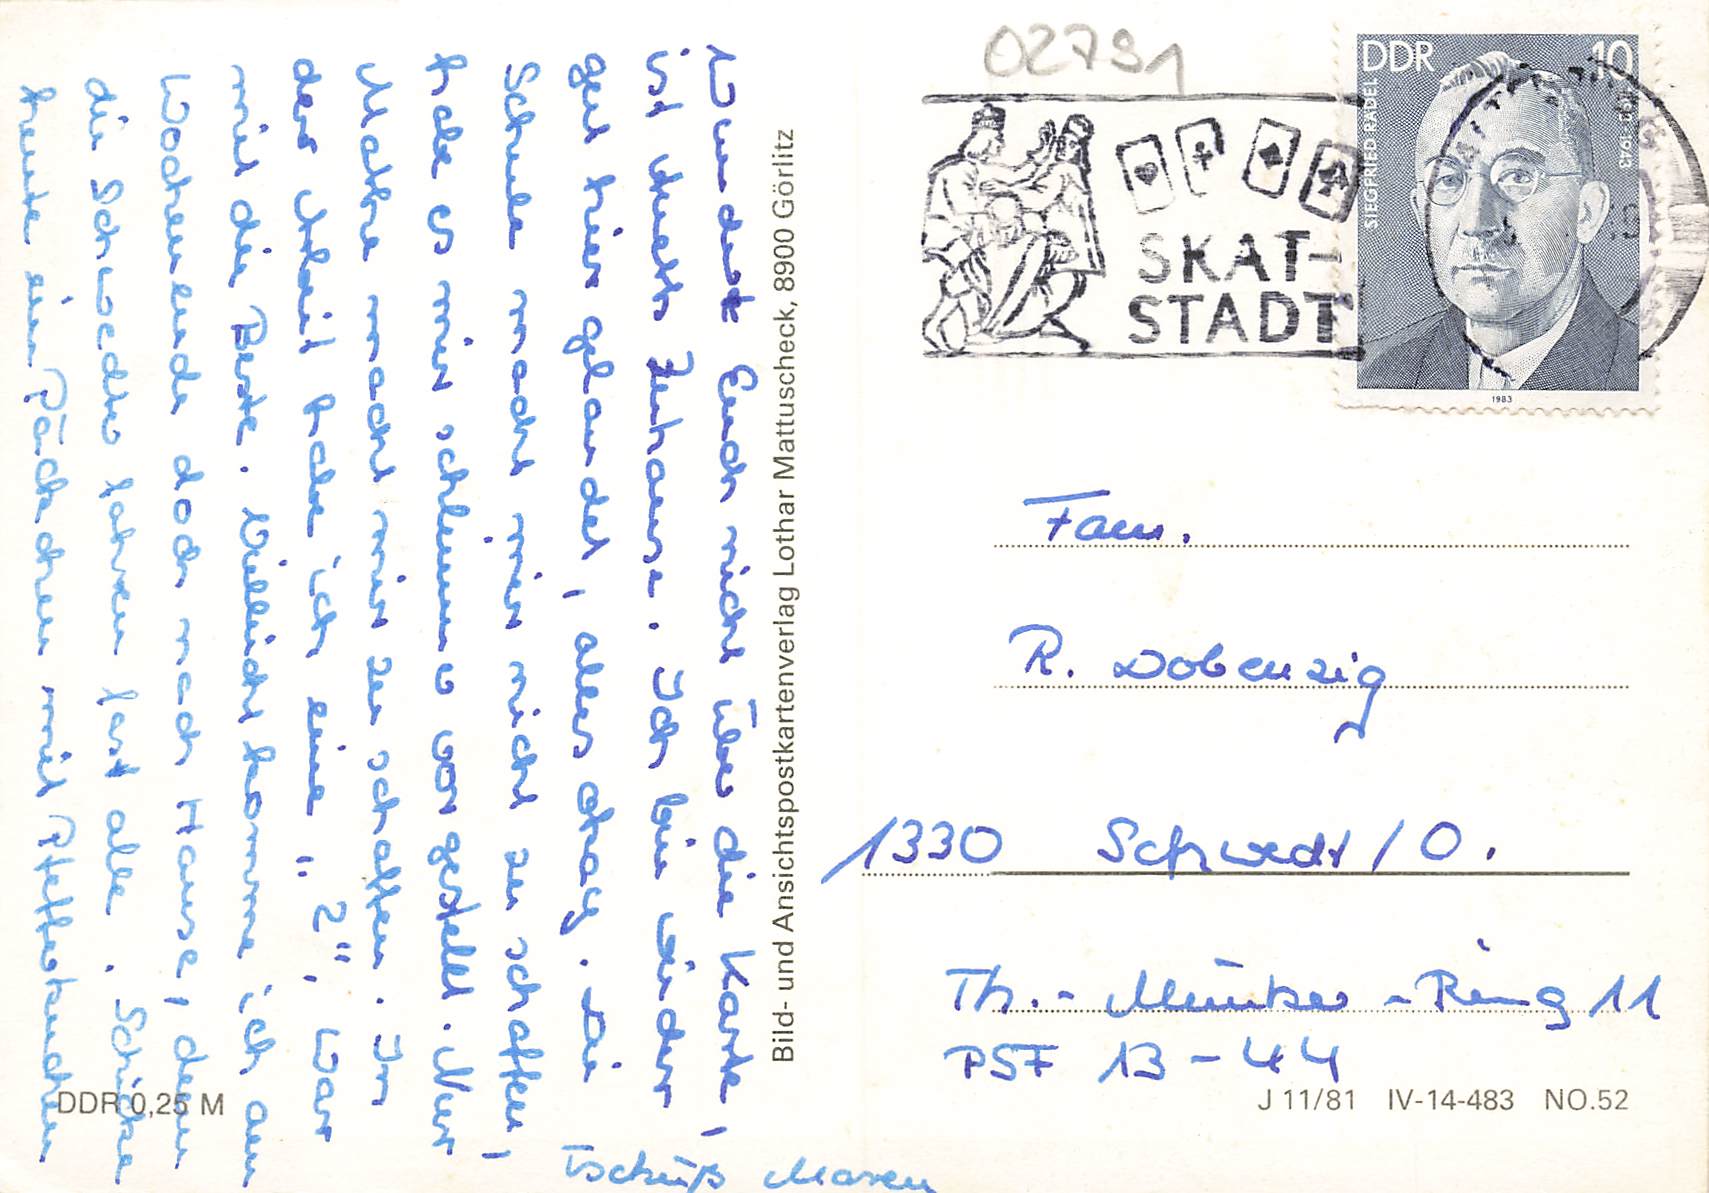 Wundert Euch nicht über die Karte,
ist mehr Zuhause. Ich bin wieder
gut hier gelandet, alles okay. Die
Schule macht mir nicht zu schaffen,
habe es mir schlimmer vorgestellt. Nur
Mathe macht mir zu schaffen. In
der Arbeit habe ich eine "2", war
mit die Beste. Vielleicht komme ich am
Wochenende doch nach Hause, denn
die Schwedter fahren fast alle. Schicke
heute ein Päckchen mit Pfefferkuchen
Tschüß Maren
DDR 0,25 M
Bild- und Ansichtspostkartenverlag Lothar Mattuscheck, 8900 Görlitz
02791
SKAT-
STADT
DDR 10
SIEGFRIED RÄDEL
1983
Fam.
R. Dobenzig
1330 Schwedt/O.
Th.-Müntzer-Ring 11
PSF 13-44
J 11/81 IV-14-483 NO.52